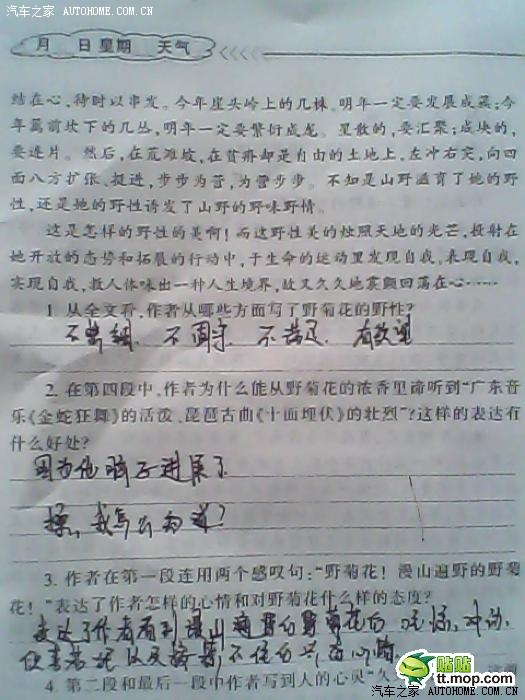 汽车之家 AUTOHOME.COM.CN
汽车之家 AUTOHOME.COM.CN
月 日 星期 天气
结在心，待时以串发。今年崖头岭上的几株，明年一定要发展成蓬；今
年篱前坎下的几丛，明年一定要繁衍成龙。星散的，要汇聚；成块的，
要连片。然后，在荒滩坡，在贫瘠却是自由的土地上，左冲右突，向四
面八方扩张、挺进，步步为营，为营步步。不知是山野滋育了她的野
性，还是她的野性诱发了山野的野味野情。
这是怎样的野性的美啊！而这野性美的灿照天地的光芒，投射在
她开放的态势和拓展的行动中，于生命的运动里发现自我，表现自我，
实现自我，教人体味出一种人生境界，故又久久地震颤回荡在心……
1. 从全文看，作者从哪些方面写了野菊花的野性？
不 不固守 不满足 有欲望
2. 在第四段中，作者为什么能从野菊花的浓香里谛听到“广东音
乐《金蛇狂舞》的活泼、琵琶古曲《十面埋伏》的壮烈”？这样的表达有
什么好处？
因为他脑子进屎了
操，我怎么知道？
3. 作者在第一段连用两个感叹句：“野菊花！漫山遍野的野菊
花！”表达了作者怎样的心情和对野菊花什么样的态度？
表达了作者看到漫山遍野的野菊花后
不住的兴奋心情
4. 第二段和最后一段中作者写到人的心灵“久
贴贴
tt.mop.com
汽车之家 AUTOHOME.COM.CN